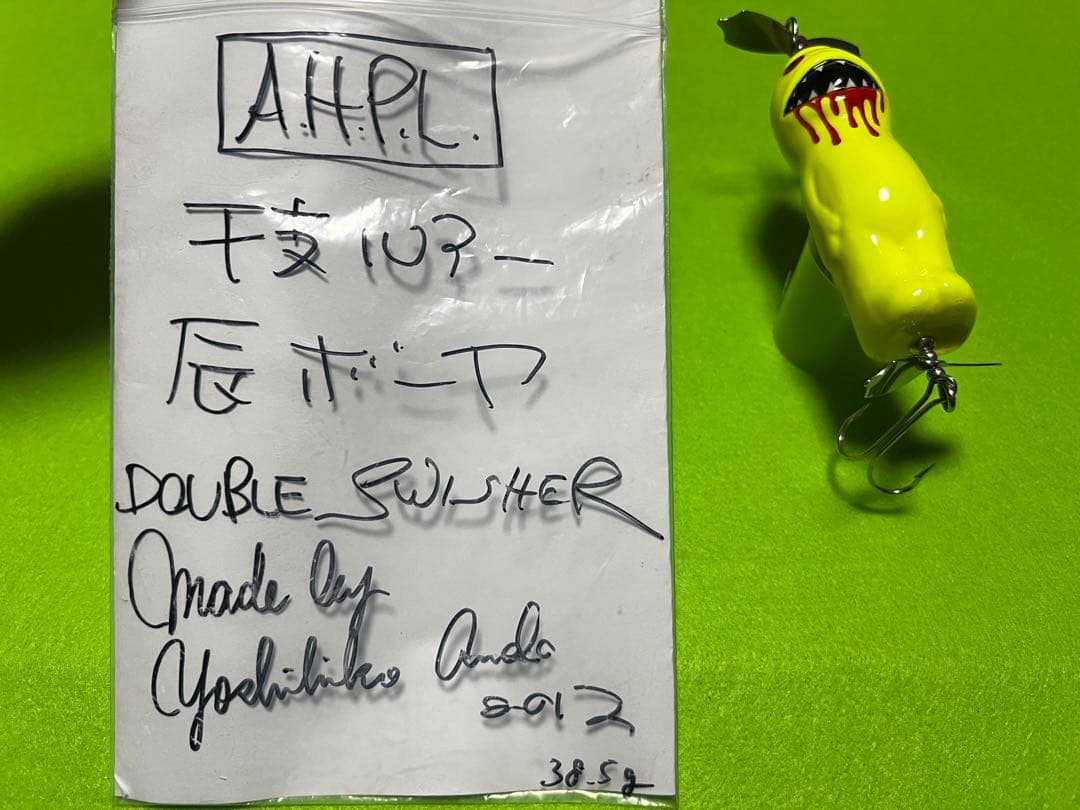 A.H.P.L.
干支ルアー
辰ボーヤ
DOUBLE SWISHER
Made by
Yoshihiko Ando
2012
38.5g